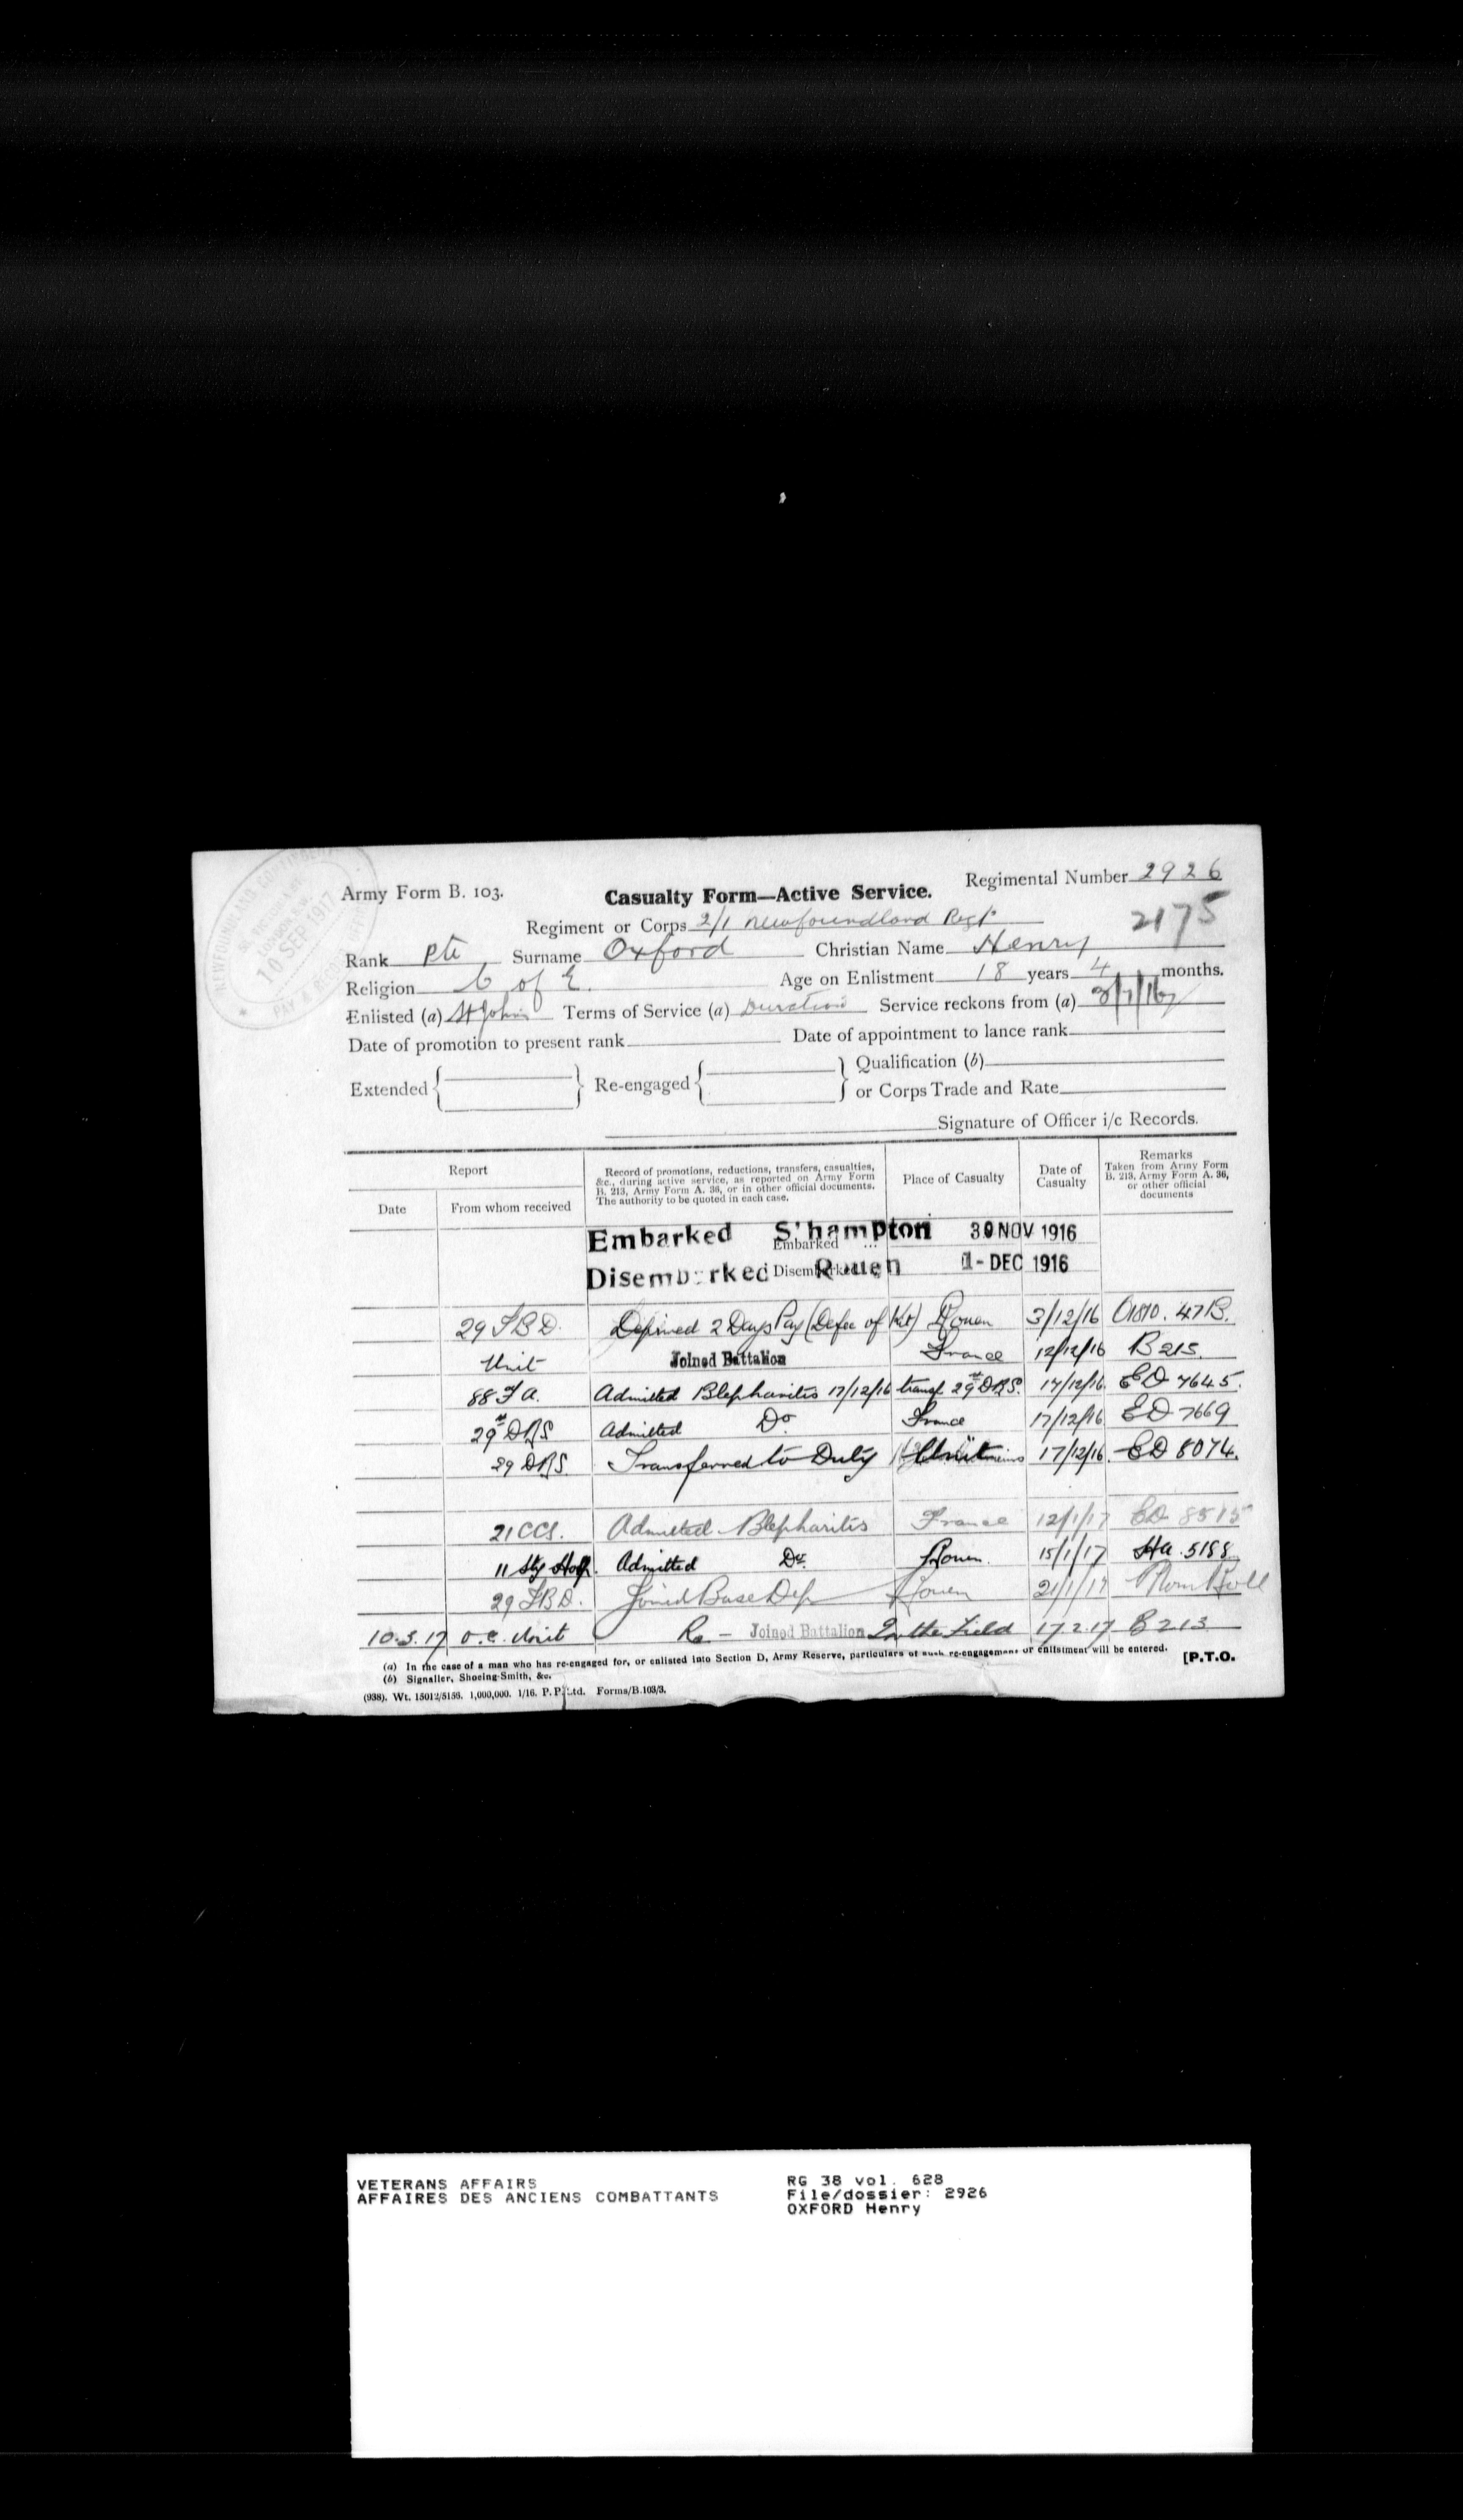 NEWFOUNDLAND CONTINGENT
10 SEP 1917
PAY & RECORD OFFICE
Army Form B. 103.
Casualty Form—Active Service.
Regimental Number 2926
2175
Regiment or Corps 2/1 Newfoundland Regt
Rank Pte Surname Oxford Christian Name Henry
Religion C of E. Age on Enlistment 18 years 4 months.
Enlisted (a) St Johns Terms of Service (a) Duration Service reckons from (a)
Date of promotion to present rank Date of appointment to lance rank
Extended Re-engaged Qualification (b)
or Corps Trade and Rate
Signature of Officer i/c Records.
Report
Date From whom received
Record of promotions, reductions, transfers, casualties, &c., during active service, as reported on Army Form B. 213, Army Form A. 36, or in other official documents. The authority to be quoted in each case.
Place of Casualty
Date of Casualty
Remarks Taken from Army Form B. 213, Army Form A. 36, or other official documents
Embarked S'hampton 30 NOV 1916
Embarked ...
Disembarked Rouen 1 - DEC 1916
29 I B D. Deprived 2 Days Pay (Defce of Kit) Rouen 3/12/16 O1810. 47B.
Unit Joined Battalion France 12/12/16 B 213.
88 F A. Admitted Blepharitis 17/12/16 transf 29th DRS. 17/12/16. ED 7645.
29th DRS Admitted Do France 17/12/16 ED 7669
29 DRS. Transferred to Duty Unit 17/12/16. ED 8074.
21 CCS. Admitted Blepharitis France 12/1/17 ED 8515
11 Sty Hosp. Admitted Do. Rouen. 15/1/17 Ha. 5188
29 IBD. Joined Base Dep Rouen 21/1/17 Nom Roll
10.3.17 O.C. Unit Re - Joined Battalion In the Field 17.2.17 B 213
(a) In the case of a man who has re-engaged for, or enlisted into Section D, Army Reserve, particulars of such re-engagement or enlistment will be entered.
(b) Signaller, Shoeing-Smith, &c.
[P.T.O.
(938). Wt. 15012/5156. 1,000,000. 1/16. P. P. Ltd. Forms/B.103/3.
VETERANS AFFAIRS
AFFAIRES DES ANCIENS COMBATTANTS
RG 38 vol. 628
File/dossier: 2926
OXFORD Henry